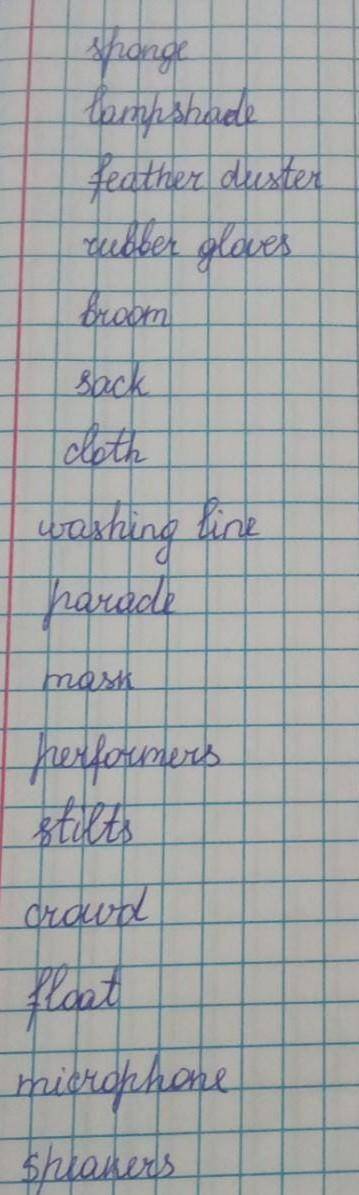 sponge
lampshade
feather duster
rubber gloves
broom
sack
cloth
washing line
parade
mask
performers
stilts
crowd
float
microphone
speakers